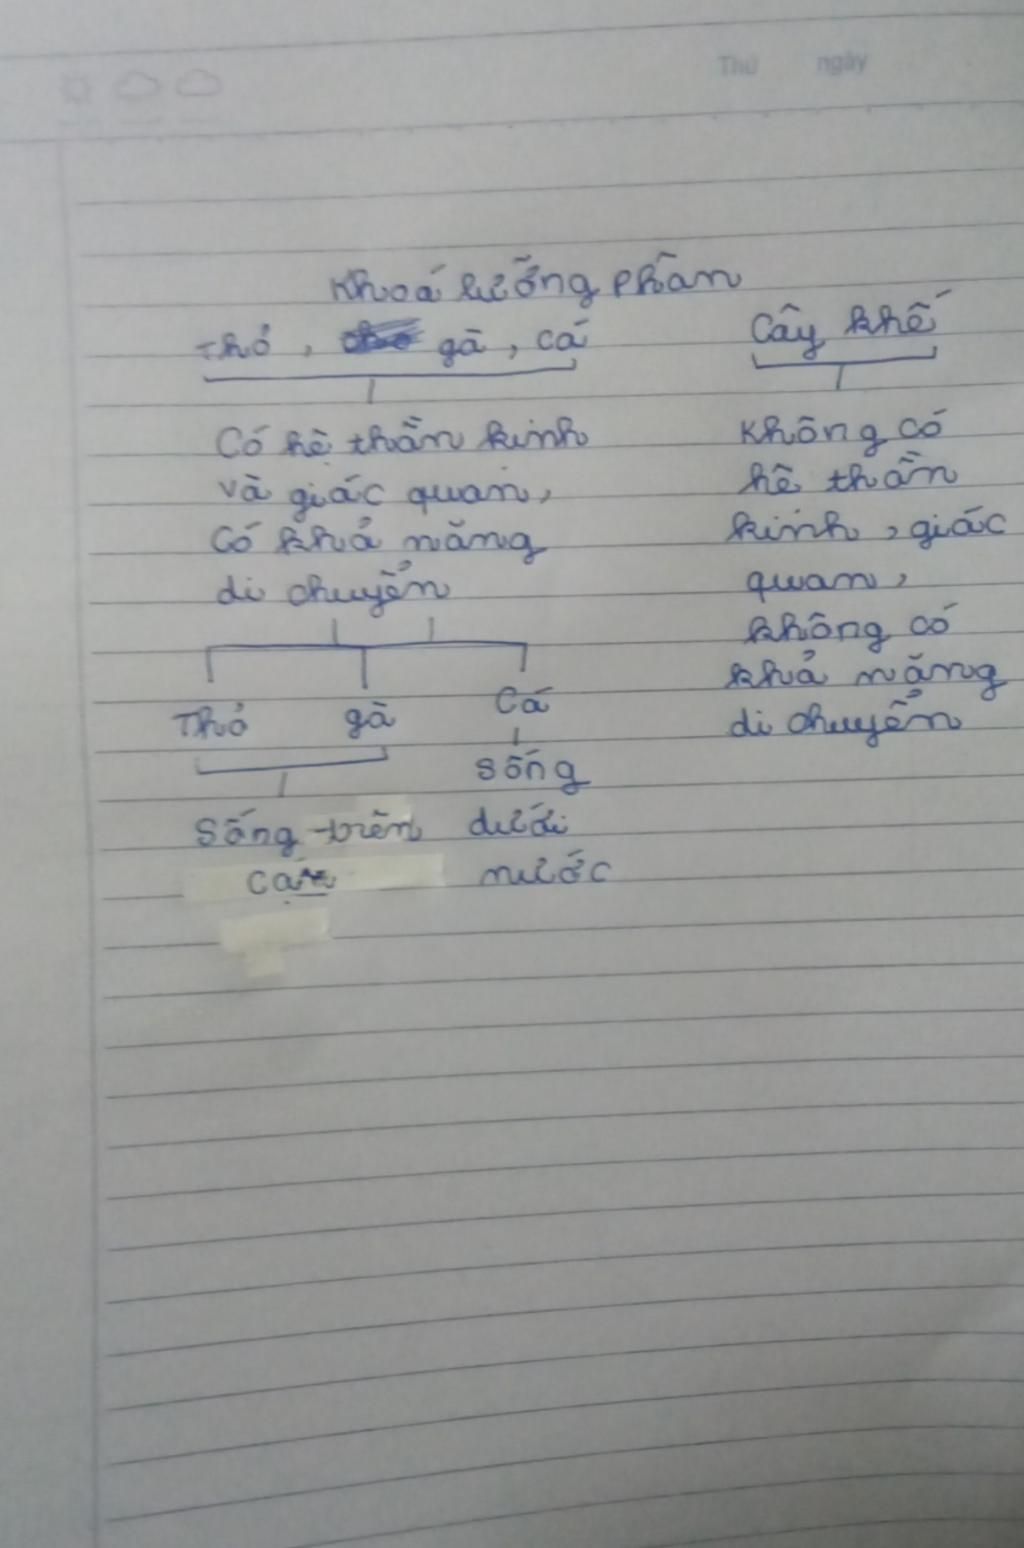 Thứ ngày
Khoá lưỡng phân
Thỏ, gà, cá
Cây khế
Có hệ thần kinh
và giác quan,
Có khả năng
di chuyển
Không có
hệ thần
kinh, giác
quan,
không có
khả năng
di chuyển
Thỏ gà Cá
Sống trên
cạn
sống
dưới
nước